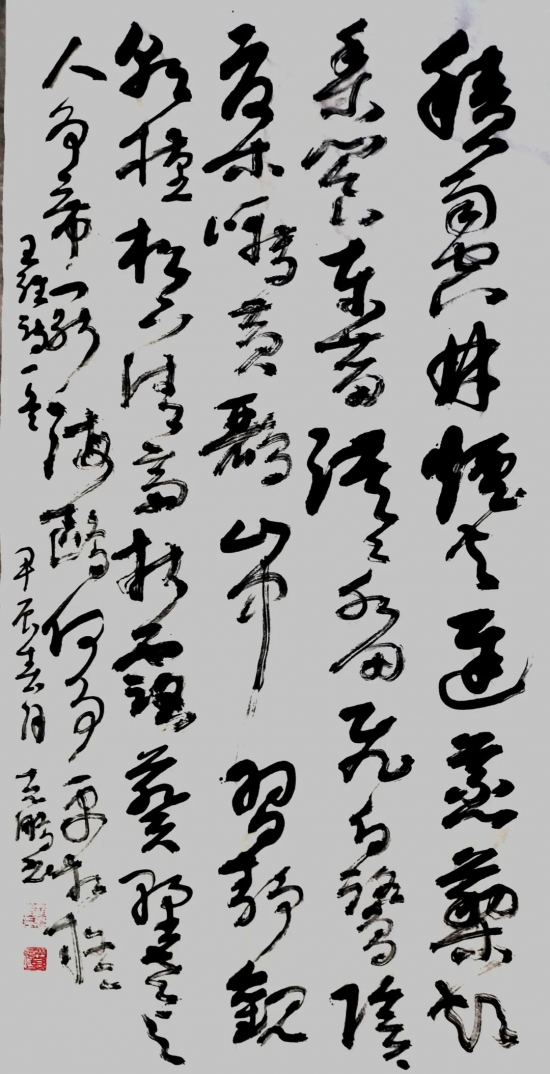 積雨空林煙火遲蒸藜炊
黍餉東菑漠〻水田飛白鷺陰〻
夏木囀黃鸝山中習靜觀
朝槿松下清齋折露葵野老与
人爭席罷海鷗何事更相疑
王維詩一首
甲辰春月 鵬書